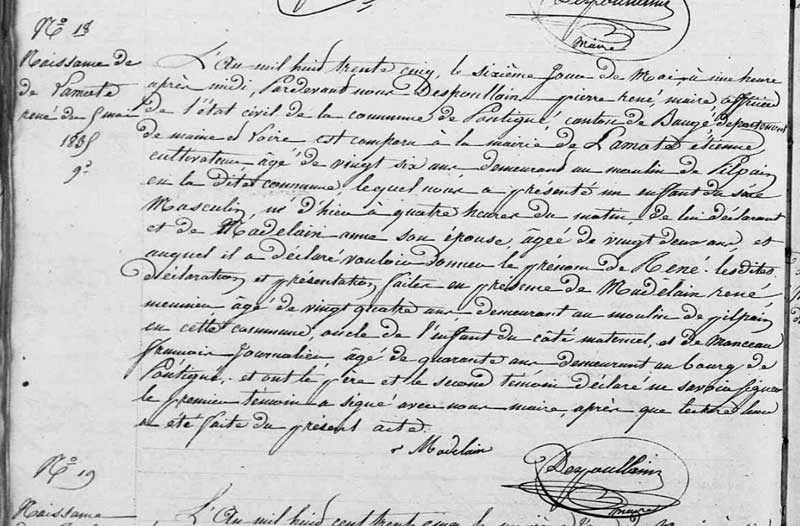 Despoullain
maire
N.o 18
Naissance de
de Lamote
rené du 5 mai
1835
9.o
L'An mil huit trente cinq, le sixième Jour de Mai, à une heure
après midi, Pardevant nous Despoullain pierre rené, maire officier
de l'état civil de la commune de Pontigné, canton de Baugé département
de maine et Loire est comparu à la mairie de Lamote étienne
cultivateur âgé de vingt six ans demeurant au moulin de Pilpain
en la dite commune lequel nous a présenté un enfant du sèxe
Masculin, né d'hier à quatre heures du matin, de lui déclarant
et de Madelain anne son épouse, âgée de vingt deux ans, et
auquel il a déclaré vouloir donner le prénom de René. les dites
déclaration et présentation faites en présence de Madelain rené
meunier âgé de vingt quatre ans, demeurant au moulin de pilpain
en cette commune, oncle de l'enfant du côté maternel, et de Manceau
françois Journalier âgé de quarante ans demeurant au bourg de
Pontigné. et ont le père et le second temoin déclaré ne savoir signer
le premier temoin a signé avec nous maire, après que lecture leur
a été faite du présent acte.
r Madelain
Despoullain
maire
N.o 19
Naissance
L'An mil huit cent trente cinq